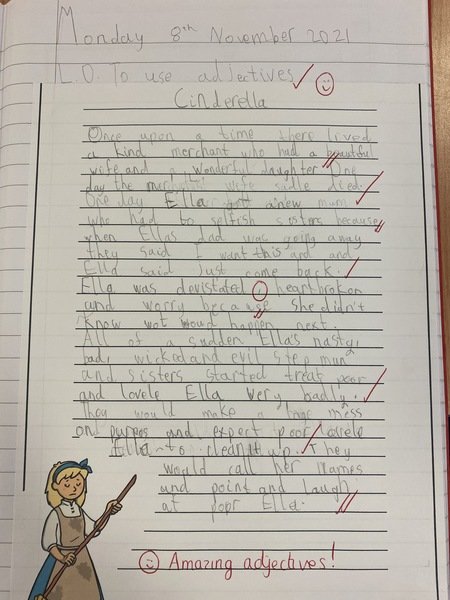 Monday 8th November 2021
L.O. To use adjectives
Cinderella
Once upon a time there lived
a kind merchant who had a beautiful
wife and a wonderful daughter One
day the wife sadle died.
One day Ella got a new mum
who had to selfish sisters because
when Ellas dad was going away
they said I want this and and
Ella said Just come back.
Ella was devistated, heartbroken
and worry because she didn't
know wot woud happen next.
All of a sudden Ella's nasty,
bad, wicked and evil step mum
and sisters started treat poor
and lovele Ella very badly.
Thay would make a huge mess
on purpos and expect poor lovele
Ella to clean it up. They
would call her names
and point and laugh
at poor Ella.
Amazing adjectives!